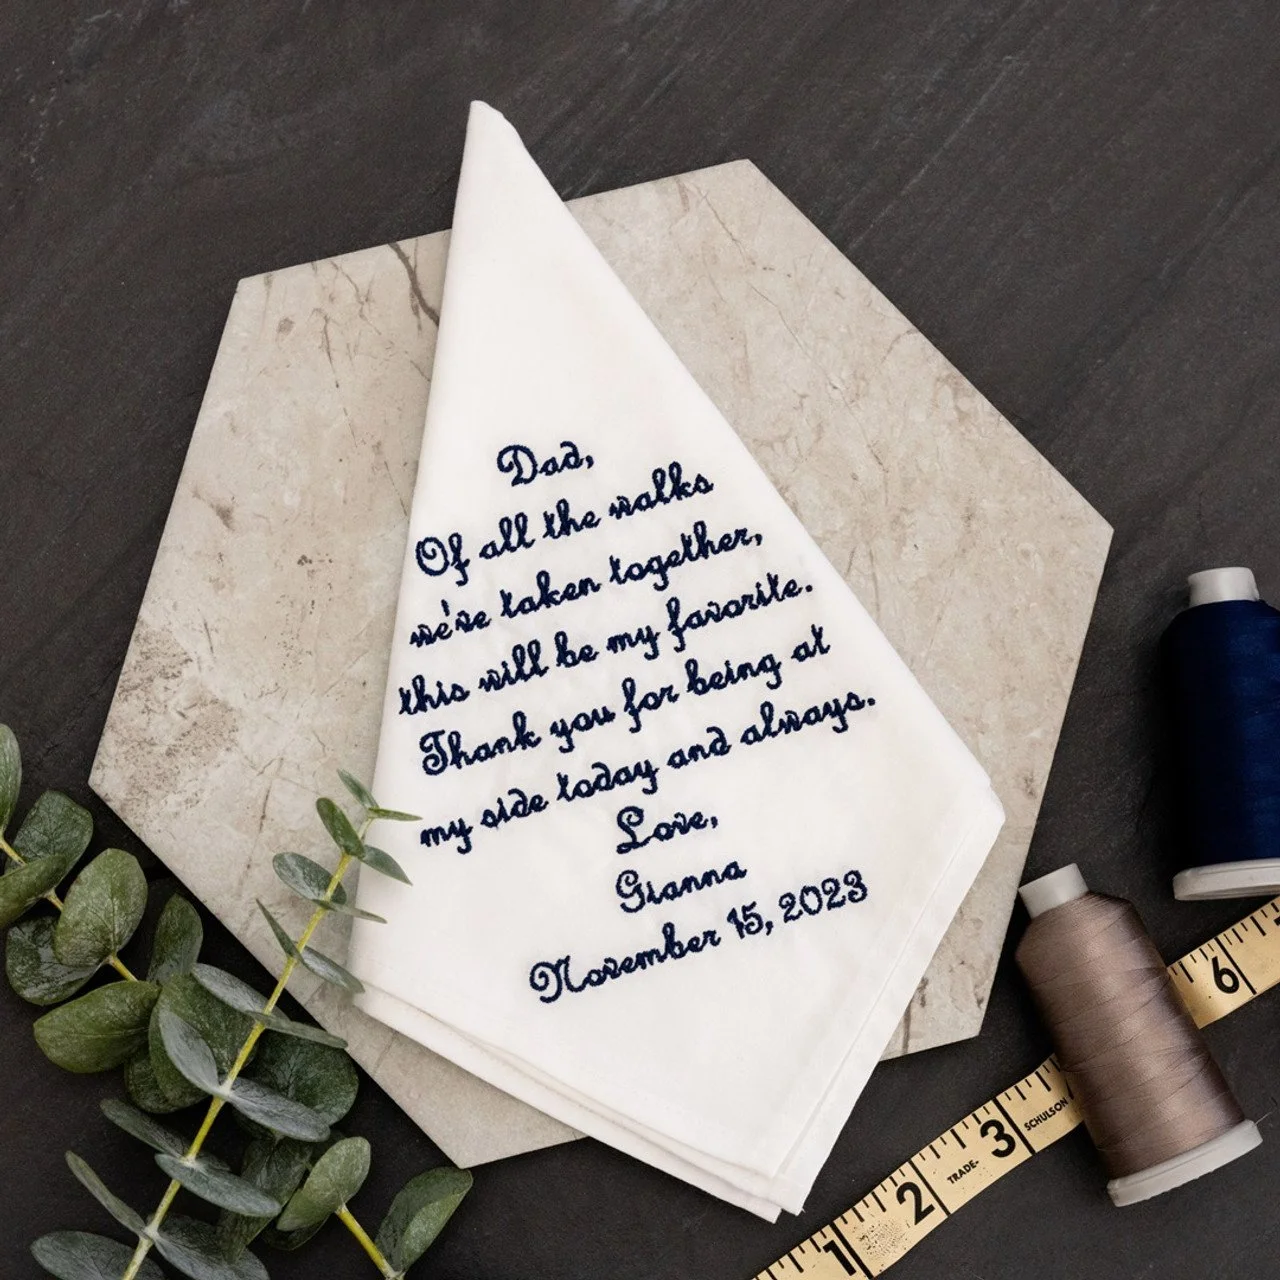 Dad,
Of all the walks
we've taken together,
this will be my favorite.
Thank you for being at
my side today and always.
Love,
Gianna
November 15, 2023
1 2 TRADE- 3 SCHULSON 6